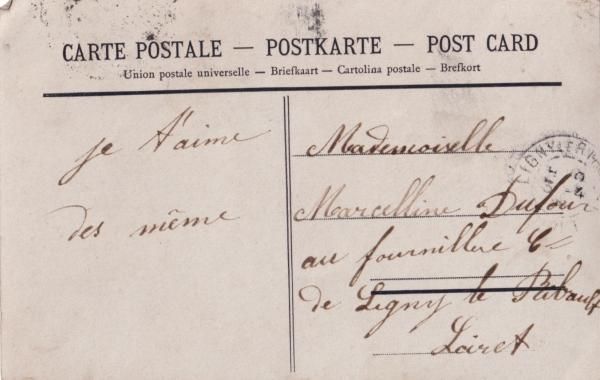 CARTE POSTALE — POSTKARTE — POST CARD
Union postale universelle — Briefkaart — Cartolina postale — Brefkort
je t'aime
des même
Mademoiselle
Marcelline Dufour
au fournillere C
de Ligny le Ribault
Loiret
LIGNY